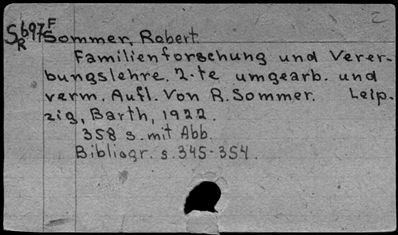 S697F
R
Sommer, Robert
Familienforschung und Verer-
bungslehre. 2.te umgearb. und
verm. Aufl. Von R. Sommer. Leip-
zig, Barth, 1922.
358 s. mit Abb.
Bibliogr. s. 345-354.